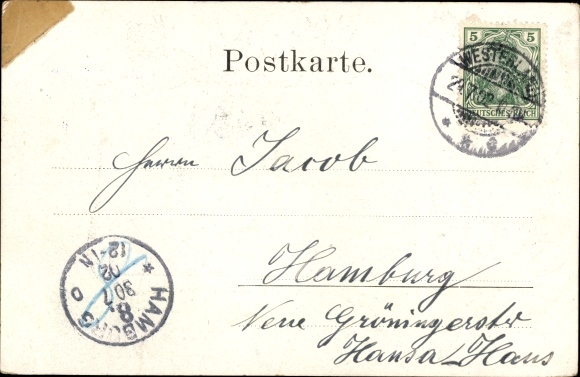 Postkarte.
5 5
WESTERLAND
DEUTSCHES REICH
Herrn Jacob
Hamburg
Neue Gröningerstr
Hansa-Haus
HAMBURG
8
30.7
02
12-1N